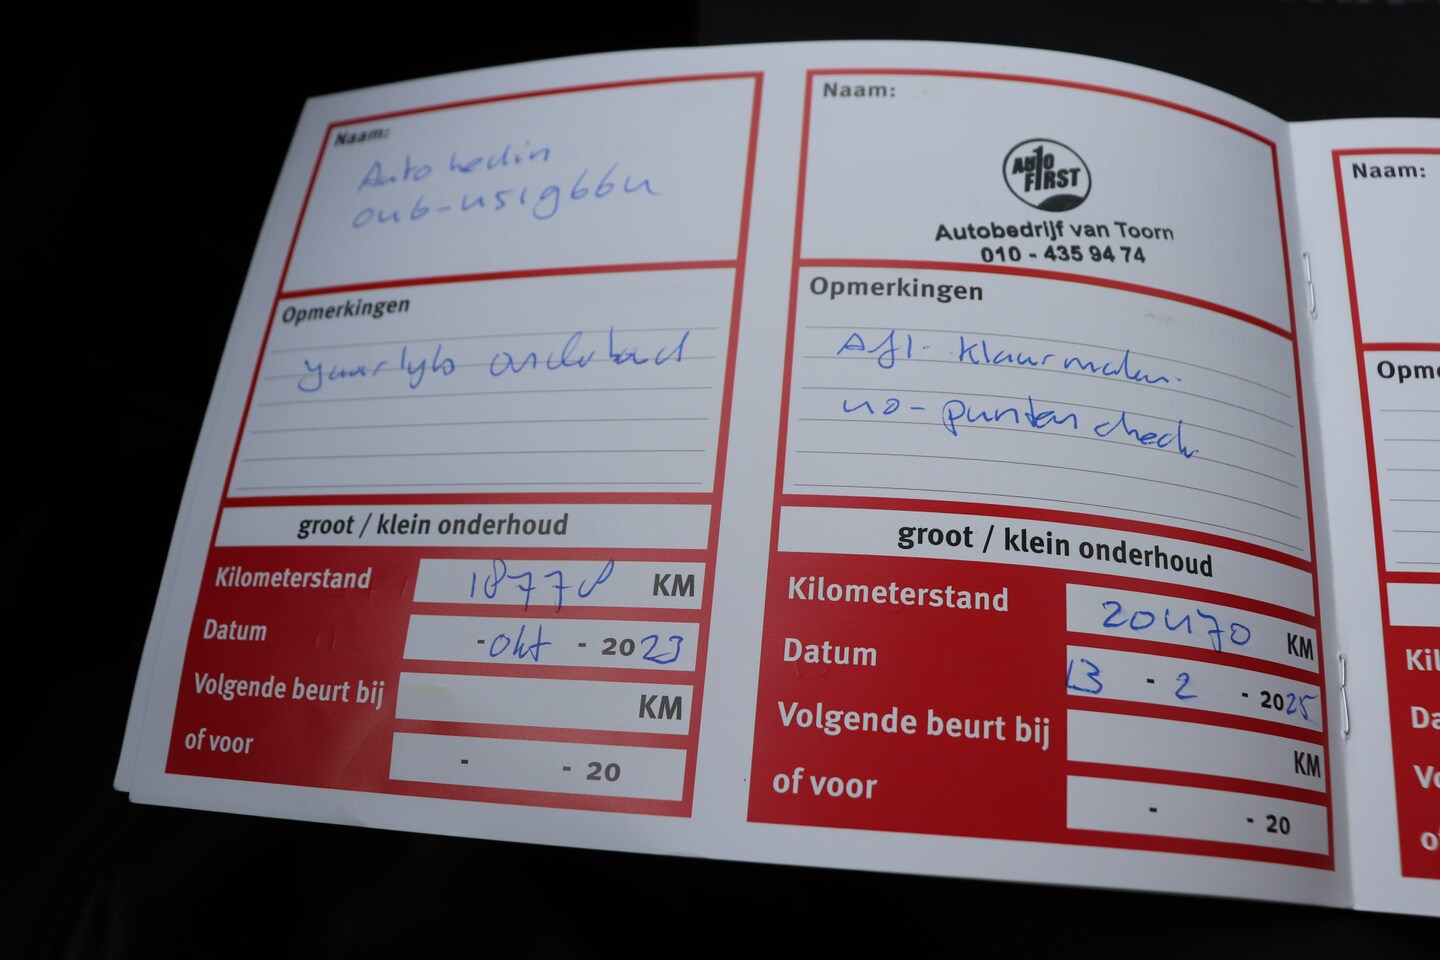 Naam:
Auto
Opmerkingen
groot / klein onderhoud
Kilometerstand 18778 KM
Datum - okt - 2023
Volgende beurt bij KM
of voor - - 20
Naam:
AUTO
FIRST
Autobedrijf van Toorn
010 - 435 94 74
Opmerkingen
Afl. klaarmaken.
110-punten check
groot / klein onderhoud
Kilometerstand 20470 KM
Datum 13 - 2 - 2025
Volgende beurt bij KM
of voor - - 20
Naam:
Opme
Kil
Da
Vo
o